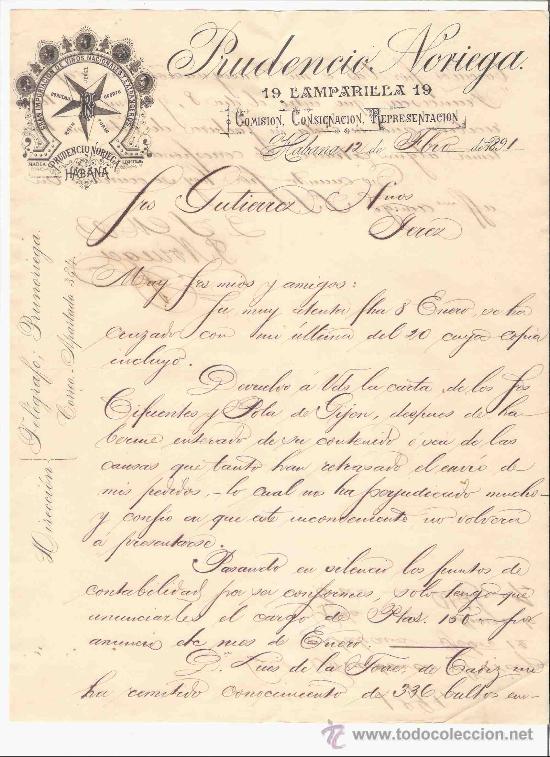 GRAN IMPORTACION DE VINOS NACIONALES Y EXTRANJEROS
PRUDENCIO NORIEGA
HABANA
MARCA
Prudencio Noriega.
19 LAMPARILLA 19
COMISION, CONSIGNACION, REPRESENTACION
Habana 12 de Fbro de 1891
Sres Gutierrez Hnos
Jerez
Dirección Telégrafo; Prunoriega.
Correo-Apartado 364.
Muy Sres mios y amigos:
Su muy atenta fha 8 Enero, se ha
cruzado con mi última del 20 cuya copia
incluyo.
Devuelvo á Vds la carta de los Sres
Cifuentes y Pola de Gijon, despues de ha-
berme enterado de su contenido o sea de las
causas que tanto han retrasado el envio de
mis pedidos,-lo cual nos ha perjudicado mucho-
y confio en que este inconveniente no volverá
á presentarse.
Pasando en silencio los puntos de
contabilidad por ser conformes, solo tengo que
anunciarles el cargo de Ptas. 150- por
anuncio de mes de Enero
Dn Luis de la Torre, de Cadiz me
ha remitido conocimiento de 336 bultos en-
todocoleccion.net